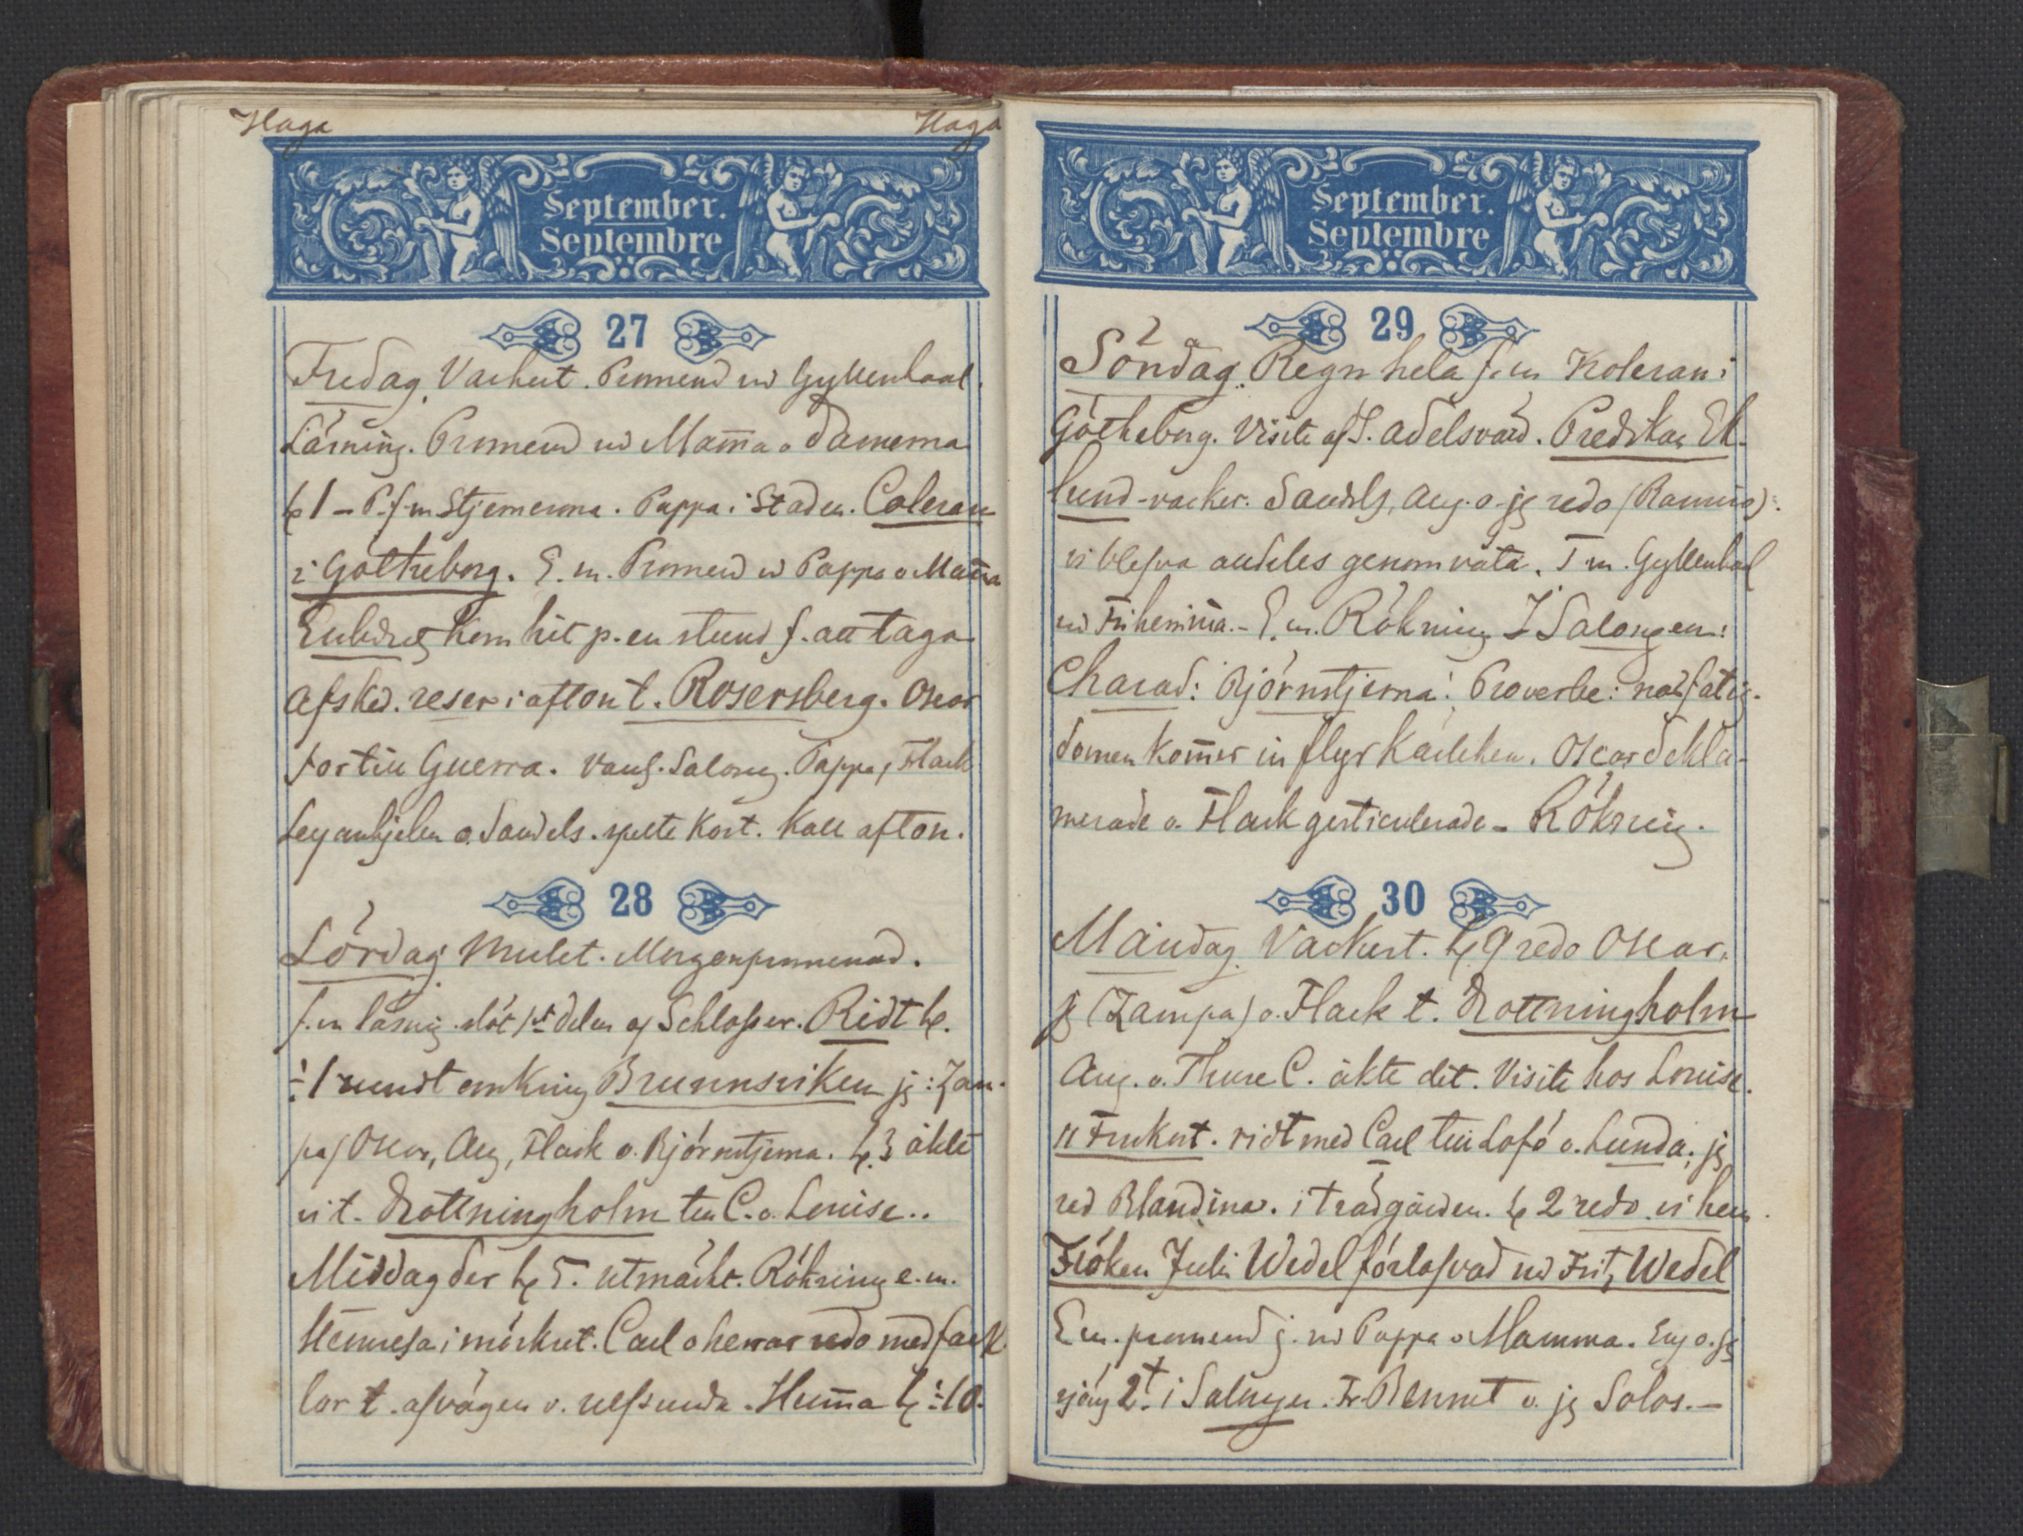 Haga
Haga
September.
Septembre
27
Fredag. Vackert. Promend m Gyllenhaal.
Läsning. Promend m Mam̄a o Damerna
kl 1 – P. f m Stjernerna. Pappa i Staden. Coleran
i Götheborg. E. m. Promend m Pappa o Mam̄a
kom hit p. en stund f. att taga
afsked. reser i afton t. Rosersberg. Oscar
for till Guerra. Vanl. Salong. Pappa, Flack
Leyonhjelm o. Sandels. spelte Kort. Kall afton.
28
Lördag Mulet. Morgonpromenad.
f. m läsnig. slöt 1st delen af Schlosser. Ridt kl.
÷1 rundt omkring Brunnsviken jg: Zam-
pa) Oscar, Aug, Flack o. Björnstjerna. kl. 3 åkte
vi t. Drottningholm till C. o. Louise..
Middag der kl 5. utmärkt. Rökning e. m.
Hemresa i mörkret. Carl o herrar redo med fack
lor t. afvägen v. Ulfsunda. Hem̄a kl ÷10.
September.
Septembre
29
Söndag. Regn hela f. m Koleran i
Götheborg. Visite af S. Adelsvärd. Predikan Ek-
lund - vacker. Sandels, Aug. o. jg redo (Ramiro):
vi blefvo alldeles genomvåta. T m. Gyllenhaal
m Friherrin̄a. – E. m. Rökning I Salongen:
Charad: Björnstjerna: Proverbe: när fatig-
domen kom̄er in flyr Kärleken. Oscar dekla-
merade o. Flack gesticulerade – Rökning.
30
Måndag. Vackert. kl 9 redo Oscar,
jg (Zampa) o. Flack t. Drottningholm
Aug. o. Thure C. åkte dit. Visite hos Louise.
11 Frukost. ridt med Carl till Lofö o. Lunda; jg
red Blandina. i trädgården. kl 2 redo vi hem.
Fröken Julie Wedel förlofvad m Fritz Wedel
E m. promend j. m Pappa o Mamma. Eug o. jg
sjöng 2t. i Salongen. Fr Bennet o. jg Solos. –